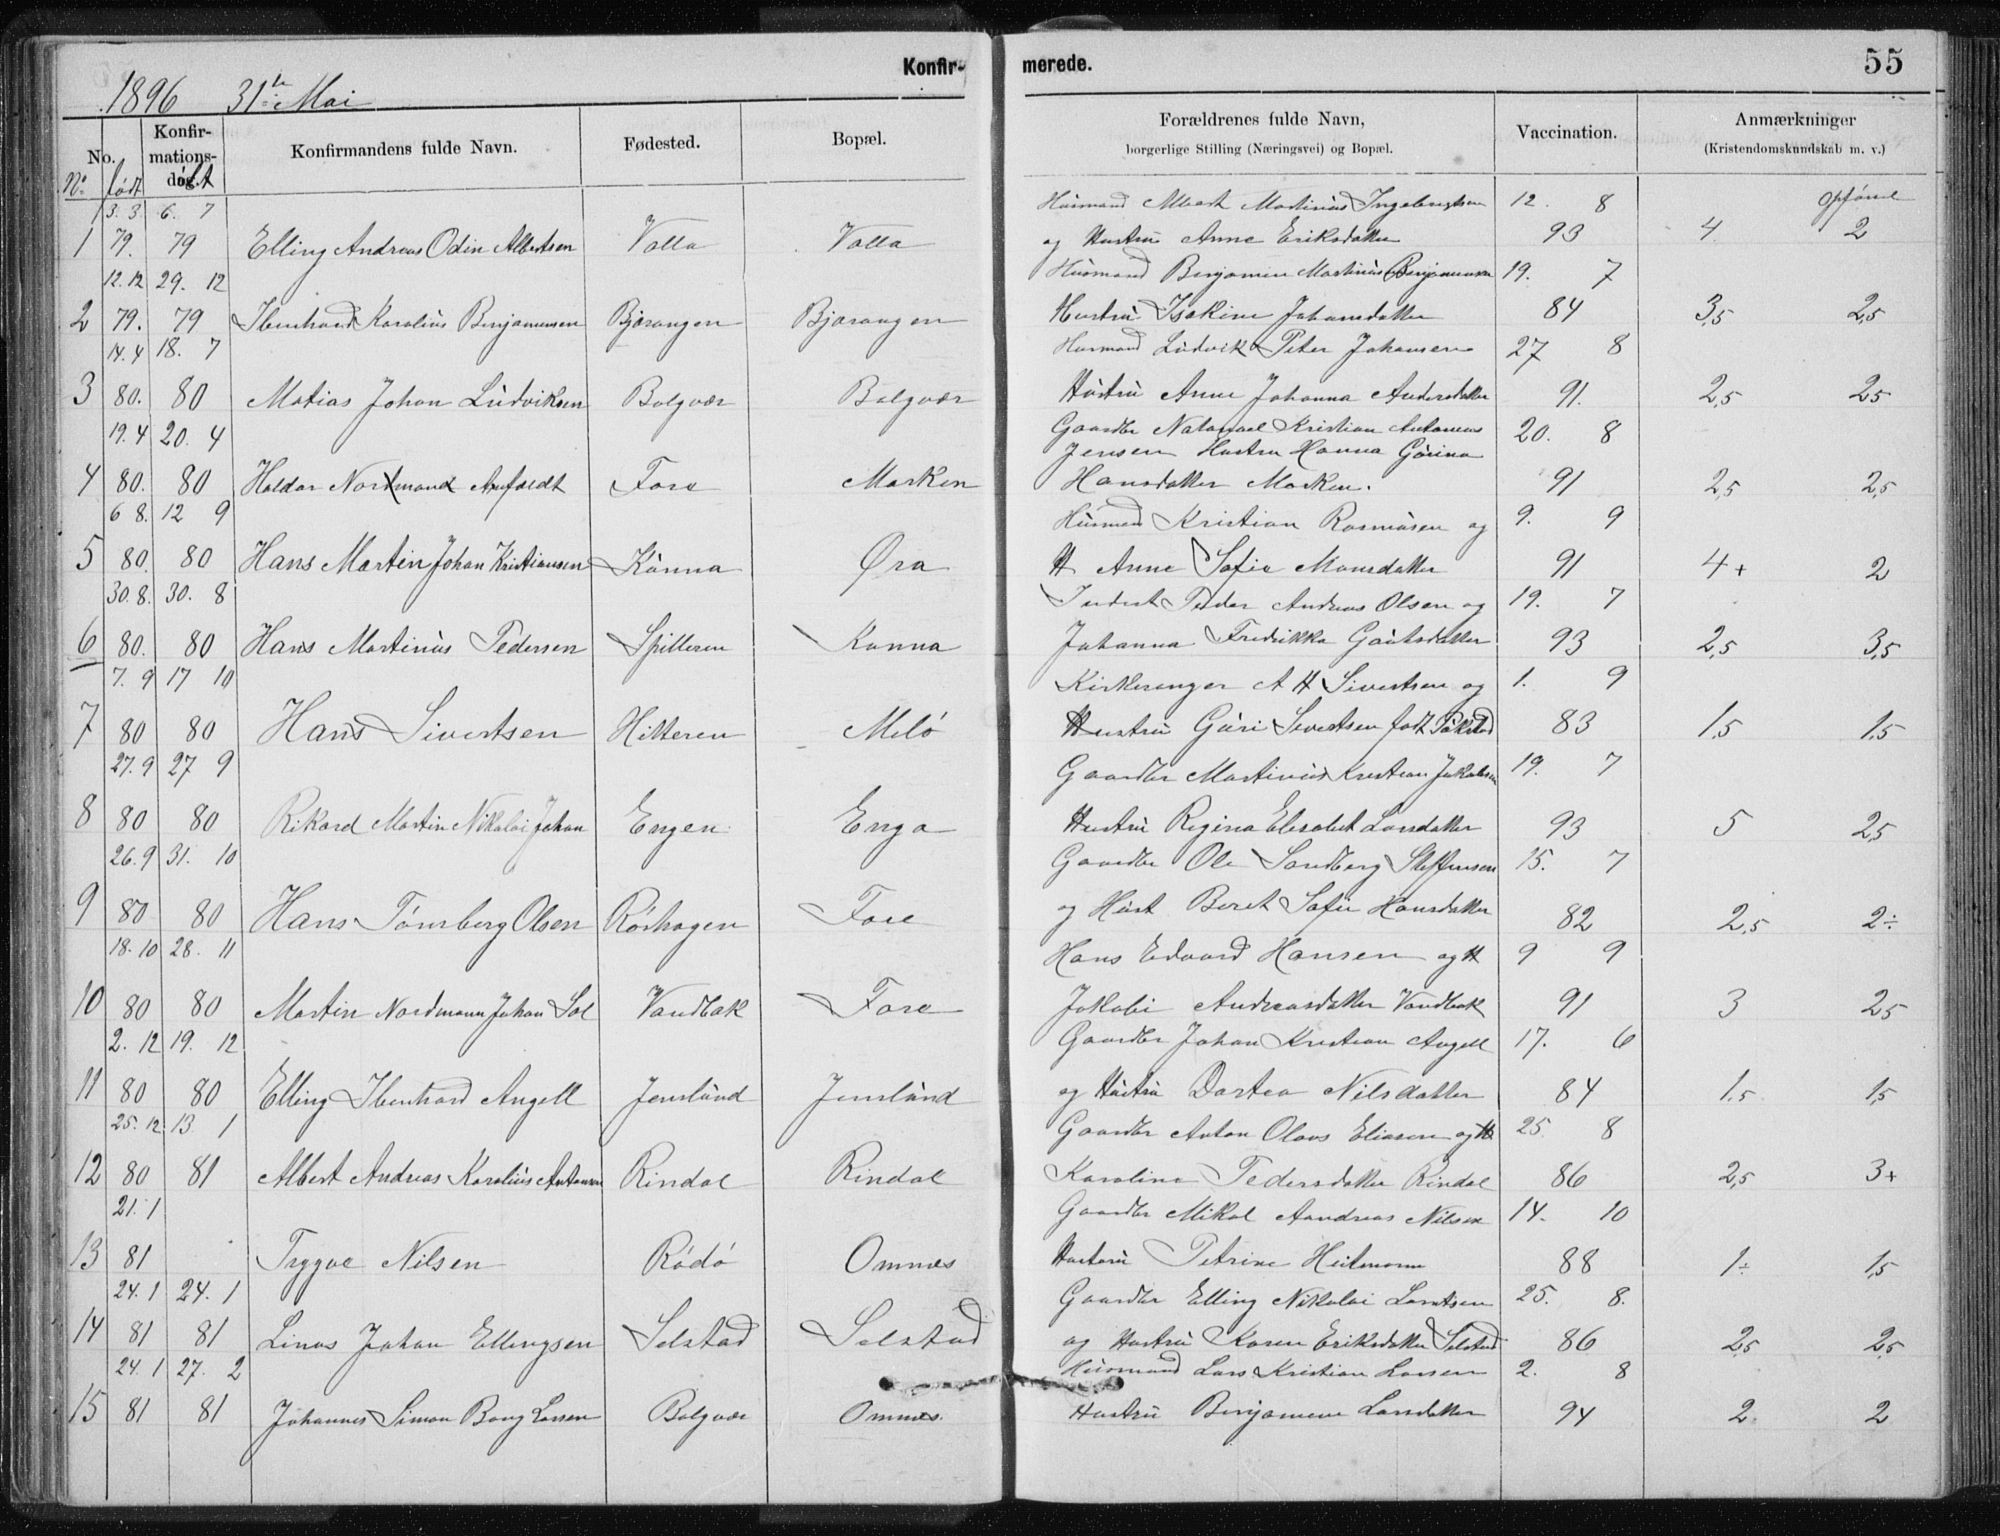 Konfir-
merede.
55
1896 31te Mai
No.
Konfir-
mations-
dag.
Konfirmandens fulde Navn.
Fødested.
Bopæl.
Forældrenes fulde Navn,
borgerlige Stilling (Næringsvei) og Bopæl.
Vaccination.
Anmærkninger
(Kristendomskundskab m. v.)
No. født døbt
opførsel
13.3. 6. 7 Husmand Albert Martinus Ingebrigtsen 12. 8
1 79. 79 Elling Andreas Odin Albertsen Valla Valla og Hustru Anne Eriksdatter 93 4 2
12.12 29. 12 Husmand Benjamin Martinus Benjaminsen 19. 7
2 79. 79 Ibenhard Karolius Benjaminsen Bjærangen Bjærangen Hustru Isakine Johansdatter 84 3,5 2,5
14.4 18. 7 Husmand Ludvik Peter Johansen 27 8
3 80. 80 Matias Johan Ludviksen Bolgvær Bolgvær Hustru Anne Johanna Andersdatter 91. 2,5 2,5
19.4 20. 4 Gaardbr Natanael Kristian Antonius 20. 8
Jensen Hustru Hanna Gurina
4 80. 80 Haldor Nordmand Aufældt Fore Marken Hansdatter Marken. 91 2,5 2,5
6 8. 12 9 Husmand Kristian Rasmusen og 9. 9
5 80. 80 Hans Martin Johan Kristiansen Kunna Øra H Anne Sofie Monsdatter 91 4+ 2
30.8. 30. 8 Inderst Peder Andreas Olsen og 19. 7
6 80. 80 Hans Martinus Pedersen Spilleren Kunna Johanna Fredrikka Gautsdatter 93 2,5 3,5
7. 9 17 10 Kirkesanger A H Sivertsen og 1. 9
7 80 80 Hans Sivertsen Hitteren Melø Hustru Guri Sivertsen født 83 1,5 1,5
27.9 27 9 Gaardbr Martinus Kristian Jakobsen 19. 7
8 80 80 Rikard Martin Nikolai Johan Engen Enga Hustru Regina Elisabet Larsdatter 93 5 2,5
26.9 31. 10 Gaardbr Ole Sandberg Steffensen 15. 7
9 80 80 Hans Tønsberg Olsen Rørhagen Fore og Hust Beret Sofie Hansdatter 82 2,5 2÷
18.10 28. 11 Hans Edvard Hansen og H 9 9
10 80 80 Martin Nordmann Johan Sol Vandbak Fore Jakobi Andreasdatter Vandbak 91 3 2,5
2. 12 19. 12 Gaardbr Johan Kristian Angell 17. 6
11 80 80 Elling Ibenhard Angell Jenslund Jenslund og Hustru Dortea Nilsdatter 84 1,5 1,5
25. 12 13 1 Gaardbr Anton Olaus Eliasen og H 25 8
12 80 81 Albert Andreas Karolius Antonsen Rindal Rindal Karoline Pedersdatter Rindal 86 2,5 3+
21. 1 Gaardbr Mikal Aandreas Nilsen 14. 10
13 81 Trygve Nilsen Rødø Omnes Hustru Petrine Heitmann 88 1÷ 1,5
24. 1 24. 1 Gaardbr Elling Nikolai Larntsen 25. 8.
14 81 81 Linas Johan Ellingsen Selstad Selstad og Hustru Karen Eriksdatter Selstad 86 2,5 2,5
24. 1 27. 2 Husmand Lars Kristian Larsen 2. 8
15 81 81 Johannes Simon Bang Larsen Bolgvær Omnes Hustru Benjamine Larsdatter 94 2 2